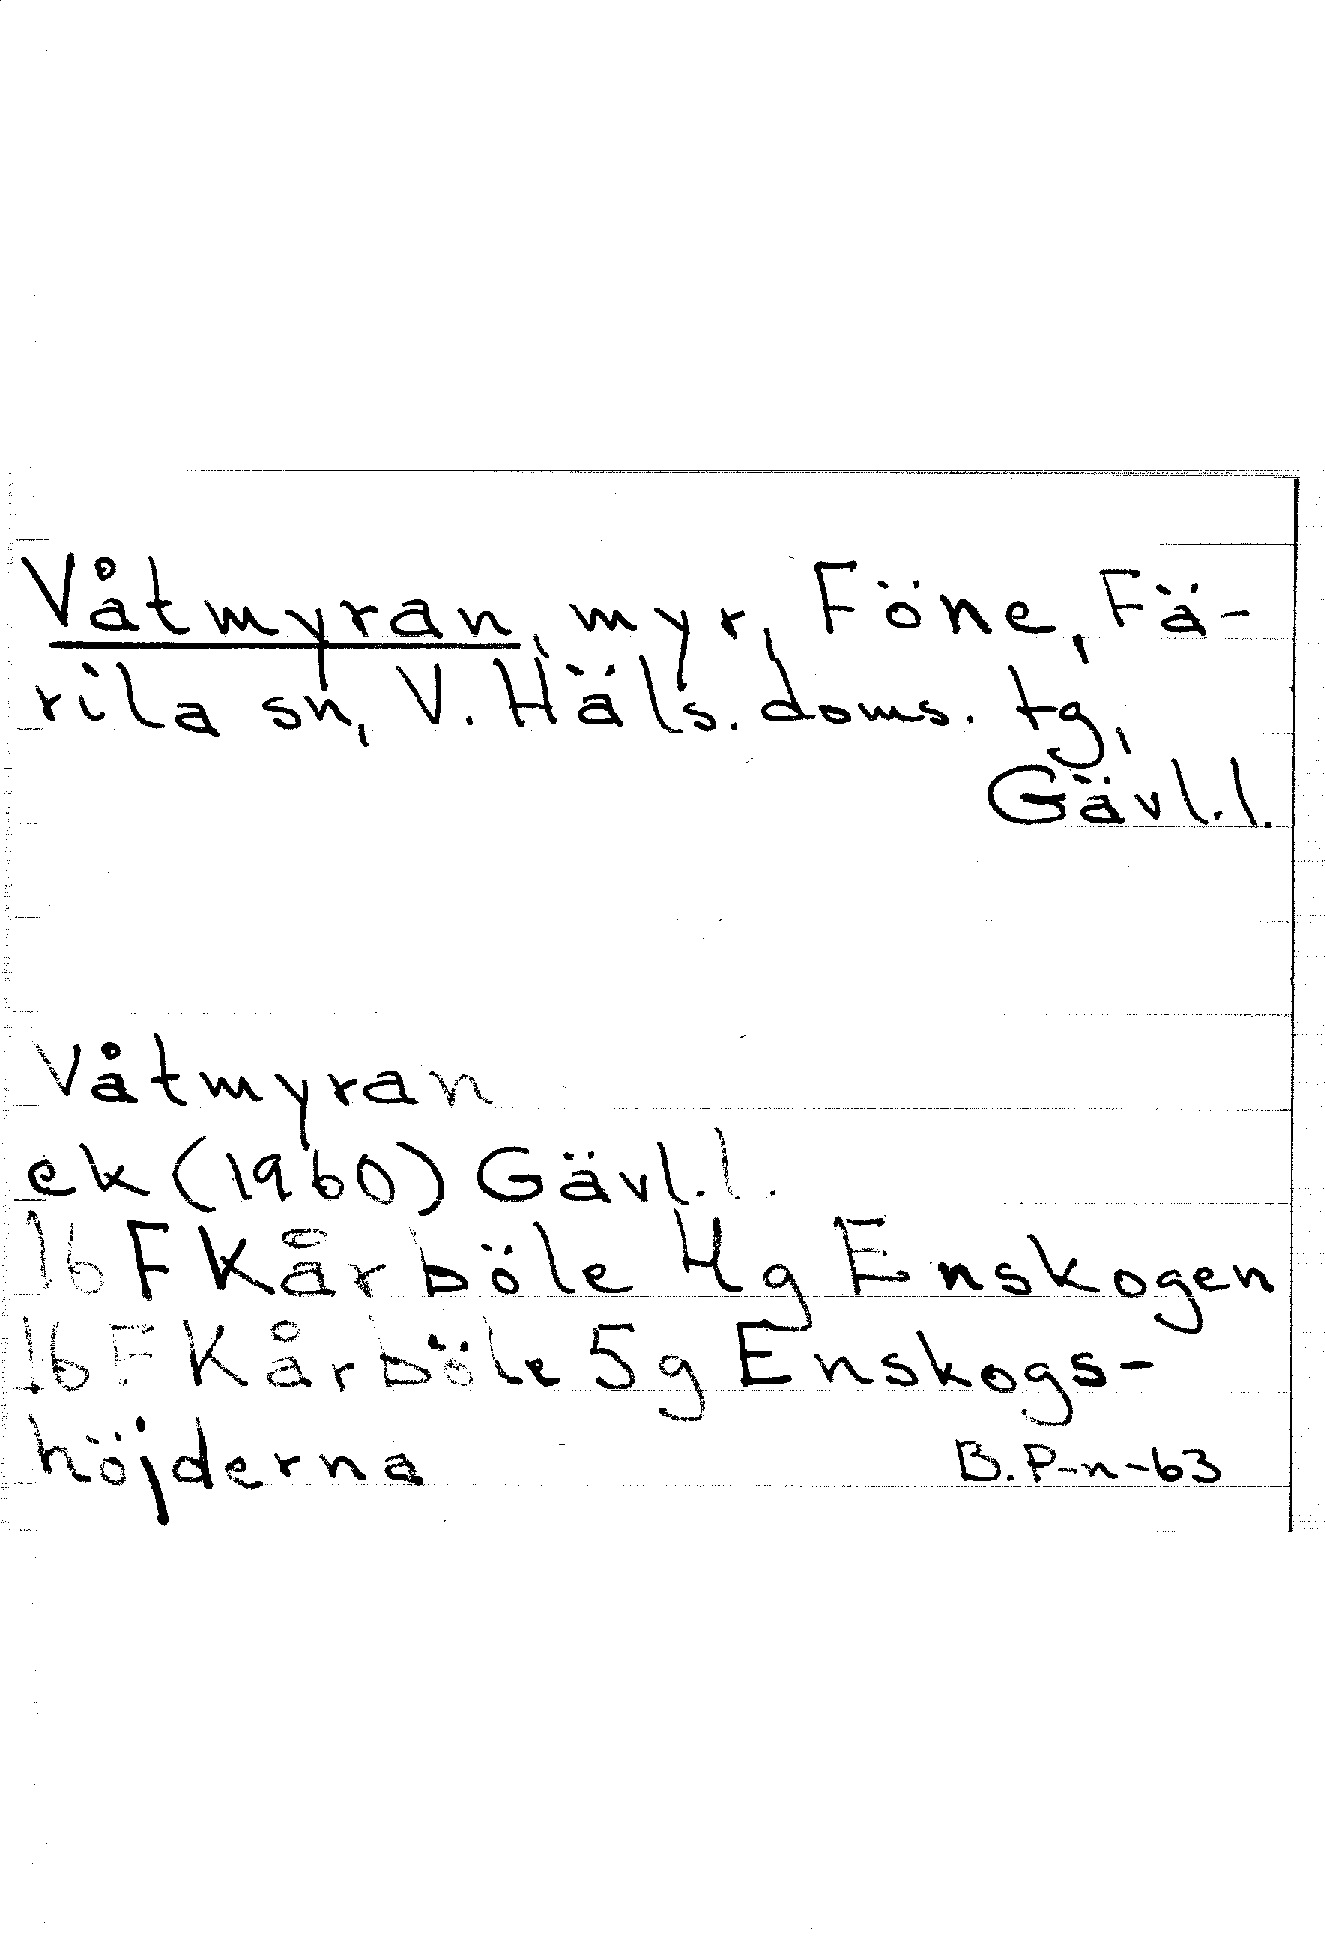 Våtmyran, myr, Föne, Fä-
rila sn, V. Häls. doms. tg,
Gävl.l.
Våtmyran
ek (1960) Gävl.l.
16 F Kårböle 4g Enskogen
16 F Kårböle 5g Enskogs-
höjderna
B.P-n-63